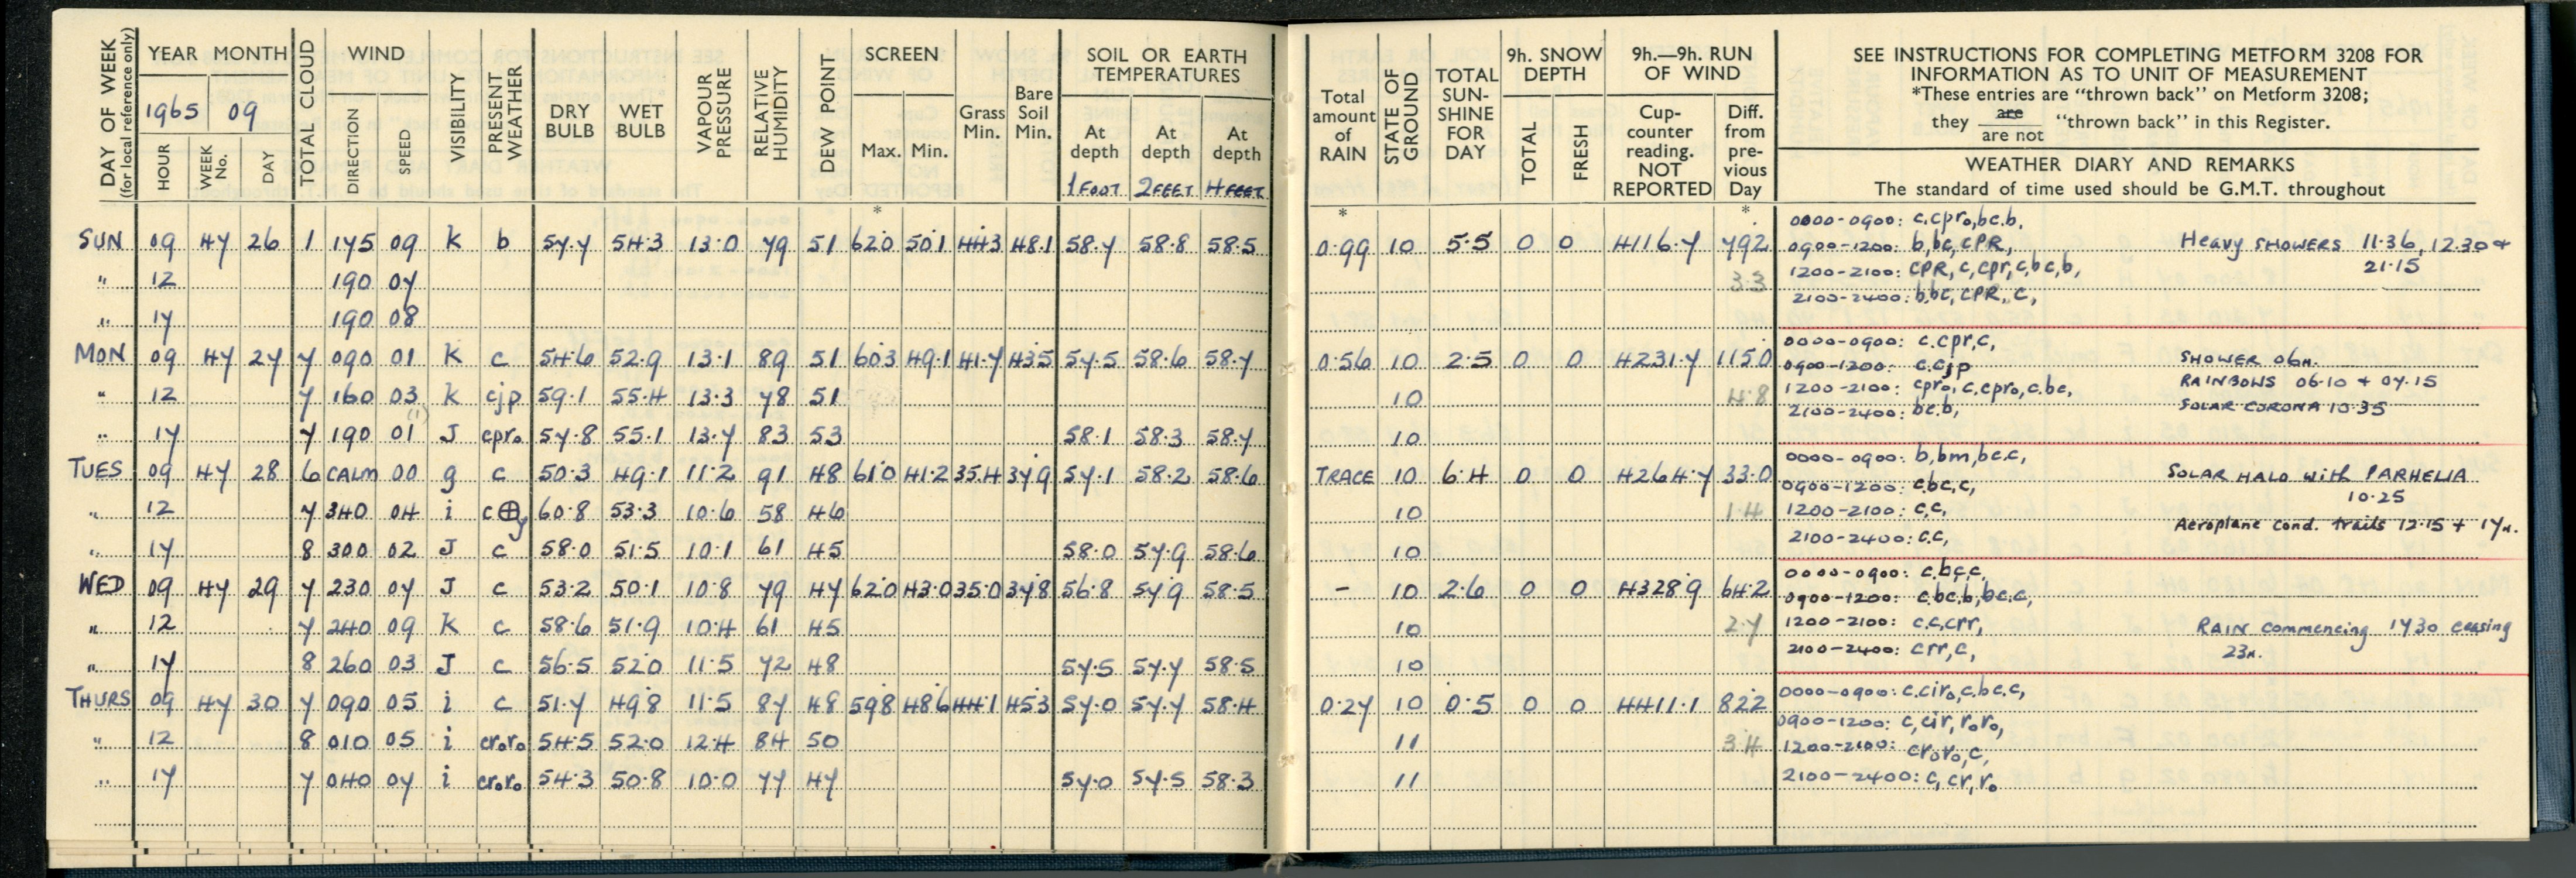 DAY OF WEEK
(for local reference only)
YEAR MONTH
1965 09
HOUR
WEEK No.
DAY
TOTAL CLOUD
WIND
DIRECTION
SPEED
VISIBILITY
PRESENT WEATHER
DRY BULB
WET BULB
VAPOUR PRESSURE
RELATIVE HUMIDITY
DEW POINT
SCREEN
Max. Min.
*
Grass Min.
Bare Soil Min.
SOIL OR EARTH
TEMPERATURES
At depth At depth At depth
1 FOOT 2 FEET 4 FEET
SUN 09 47 26 1 175 09 k b 57.7 54.3 13.0 79 51 62.0 50.1 44.3 48.1 58.7 58.8 58.5
" 12 190 07
" 17 190 08
MON 09 47 27 7 090 01 k c 54.6 52.9 13.1 89 51 60.3 49.1 41.7 43.5 57.5 58.6 58.7
" 12 7 160 03 k cjp 59.1 55.4 13.3 78 51
(1)
" 17 7 190 01 J cpr₀ 57.8 55.1 13.7 83 53 58.1 58.3 58.7
TUES 09 47 28 6 CALM 00 g c 50.3 49.1 11.2 91 48 61.0 41.2 35.4 37.9 57.1 58.2 58.6
" 12 7 340 04 i c⊕y 60.8 53.3 10.6 58 46
" 17 8 300 02 J c 58.0 51.5 10.1 61 45 58.0 57.9 58.6
WED 09 47 29 7 230 07 J c 53.2 50.1 10.8 79 47 62.0 43.0 35.0 37.8 56.8 57.9 58.5
" 12 7 240 09 k c 58.6 51.9 10.4 61 45
" 17 8 260 03 J c 56.5 52.0 11.5 72 48 57.5 57.7 58.5
THURS 09 47 30 7 090 05 i c 51.7 49.8 11.5 87 48 59.8 48.6 44.1 45.3 57.0 57.7 58.4
" 12 8 010 05 i cr₀r₀ 54.5 52.0 12.4 84 50
" 17 7 040 07 i cr₀r₀ 54.3 50.8 10.0 77 47 57.0 57.5 58.3
Total amount of RAIN
*
STATE OF GROUND
TOTAL SUN-SHINE FOR DAY
9h. SNOW DEPTH
TOTAL
FRESH
9h.—9h. RUN OF WIND
Cup-counter reading. NOT REPORTED
Diff. from pre-vious Day
*
SEE INSTRUCTIONS FOR COMPLETING METFORM 3208 FOR
INFORMATION AS TO UNIT OF MEASUREMENT
*These entries are "thrown back" on Metform 3208;
they are / are not "thrown back" in this Register.
WEATHER DIARY AND REMARKS
The standard of time used should be G.M.T. throughout
0000-0900: c,cpr₀,bc,b,
0.99 10 5.5 0 0 4116.7 79.2 0900-1200: b,bc,cPR, Heavy SHOWERS 11.36, 12.30 +
3.3 1200-2100: cPR, c,cpr,c,bc,b, 21.15
2100-2400: b,bc, cPR, c,
0000-0900: c.cpr,c,
0.56 10 2.5 0 0 4231.7 115.0 0900-1200: c.cjp SHOWER 06H.
10 4.8 1200-2100: cpr₀, c.cpr₀,c.bc, RAINBOWS 06.10 + 07.15
2100-2400: bc.b, SOLAR CORONA 10.35
10
0000-0900: b,bm,bc.c,
TRACE 10 6.4 0 0 4264.7 33.0 0900-1200: c.bc,c, SOLAR HALO with PARHELIA
10.25
10 1.4 1200-2100: c,c, Aeroplane cond. trails 12.15 + 17H.
10 2100-2400: c.c,
0000-0900: c.bc,c,
- 10 2.6 0 0 4328.9 64.2 0900-1200: c.bc.b,bc.c,
10 2.7 1200-2100: c.c,crr, RAIN commencing 1730 ceasing
10 2100-2400: crr,c, 23H.
0.27 10 0.5 0 0 4411.1 82.2 0000-0900: c.cir₀,c.bc.c,
0900-1200: c,cir,r₀r₀,
11 3.4 1200-2100: cr₀r₀,c,
11 2100-2400: c, cr,r₀